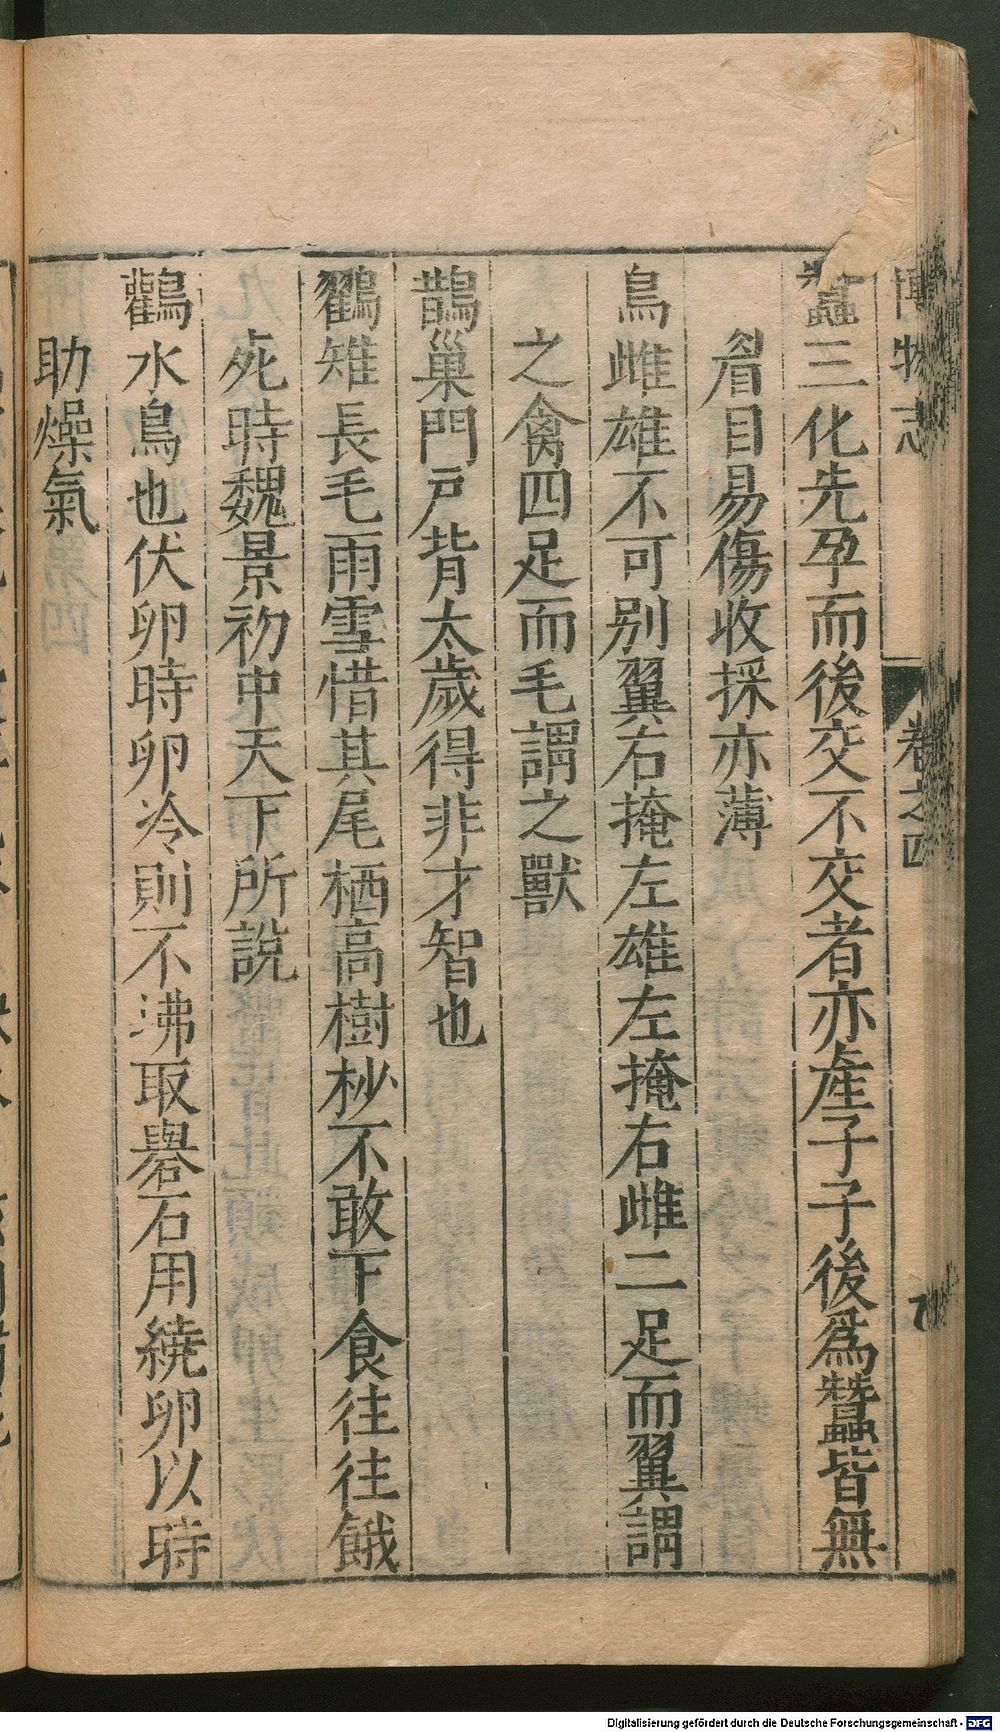 博物志 卷之四
蠶三化先孕而後交不交者亦產子子後爲蠶皆無
眉目易傷收採亦薄
鳥雌雄不可别翼右掩左雄左掩右雌二足而翼謂
之禽四足而毛謂之獸
鵲巢門戸背太歲得非才智也
鸐雉長毛雨雪惜其尾栖高樹杪不敢下食往往餓
死時魏景初中天下所說
鸛水鳥也伏卵時卵冷則不沸取礜石用繞卵以時
助燥氣
Digitalisierung gefördert durch die Deutsche Forschungsgemeinschaft - DFG